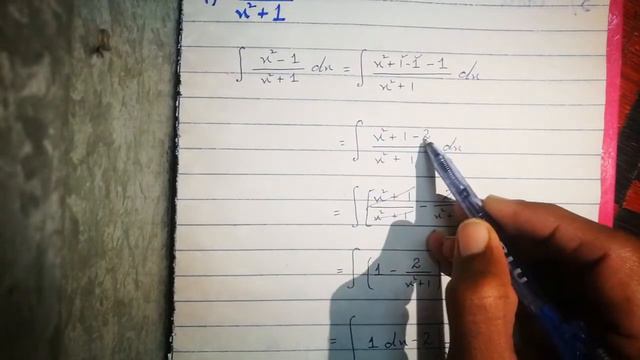 x²+1
∫ x²-1/x²+1 dx = ∫ x²+1-1-1/x²+1 dx
= ∫ x²+1-2/x²+1 dx
= ∫ { x²+1/x²+1 - /x²
= ∫ { 1 - 2/x²+1
= ∫ 1 dx - 2